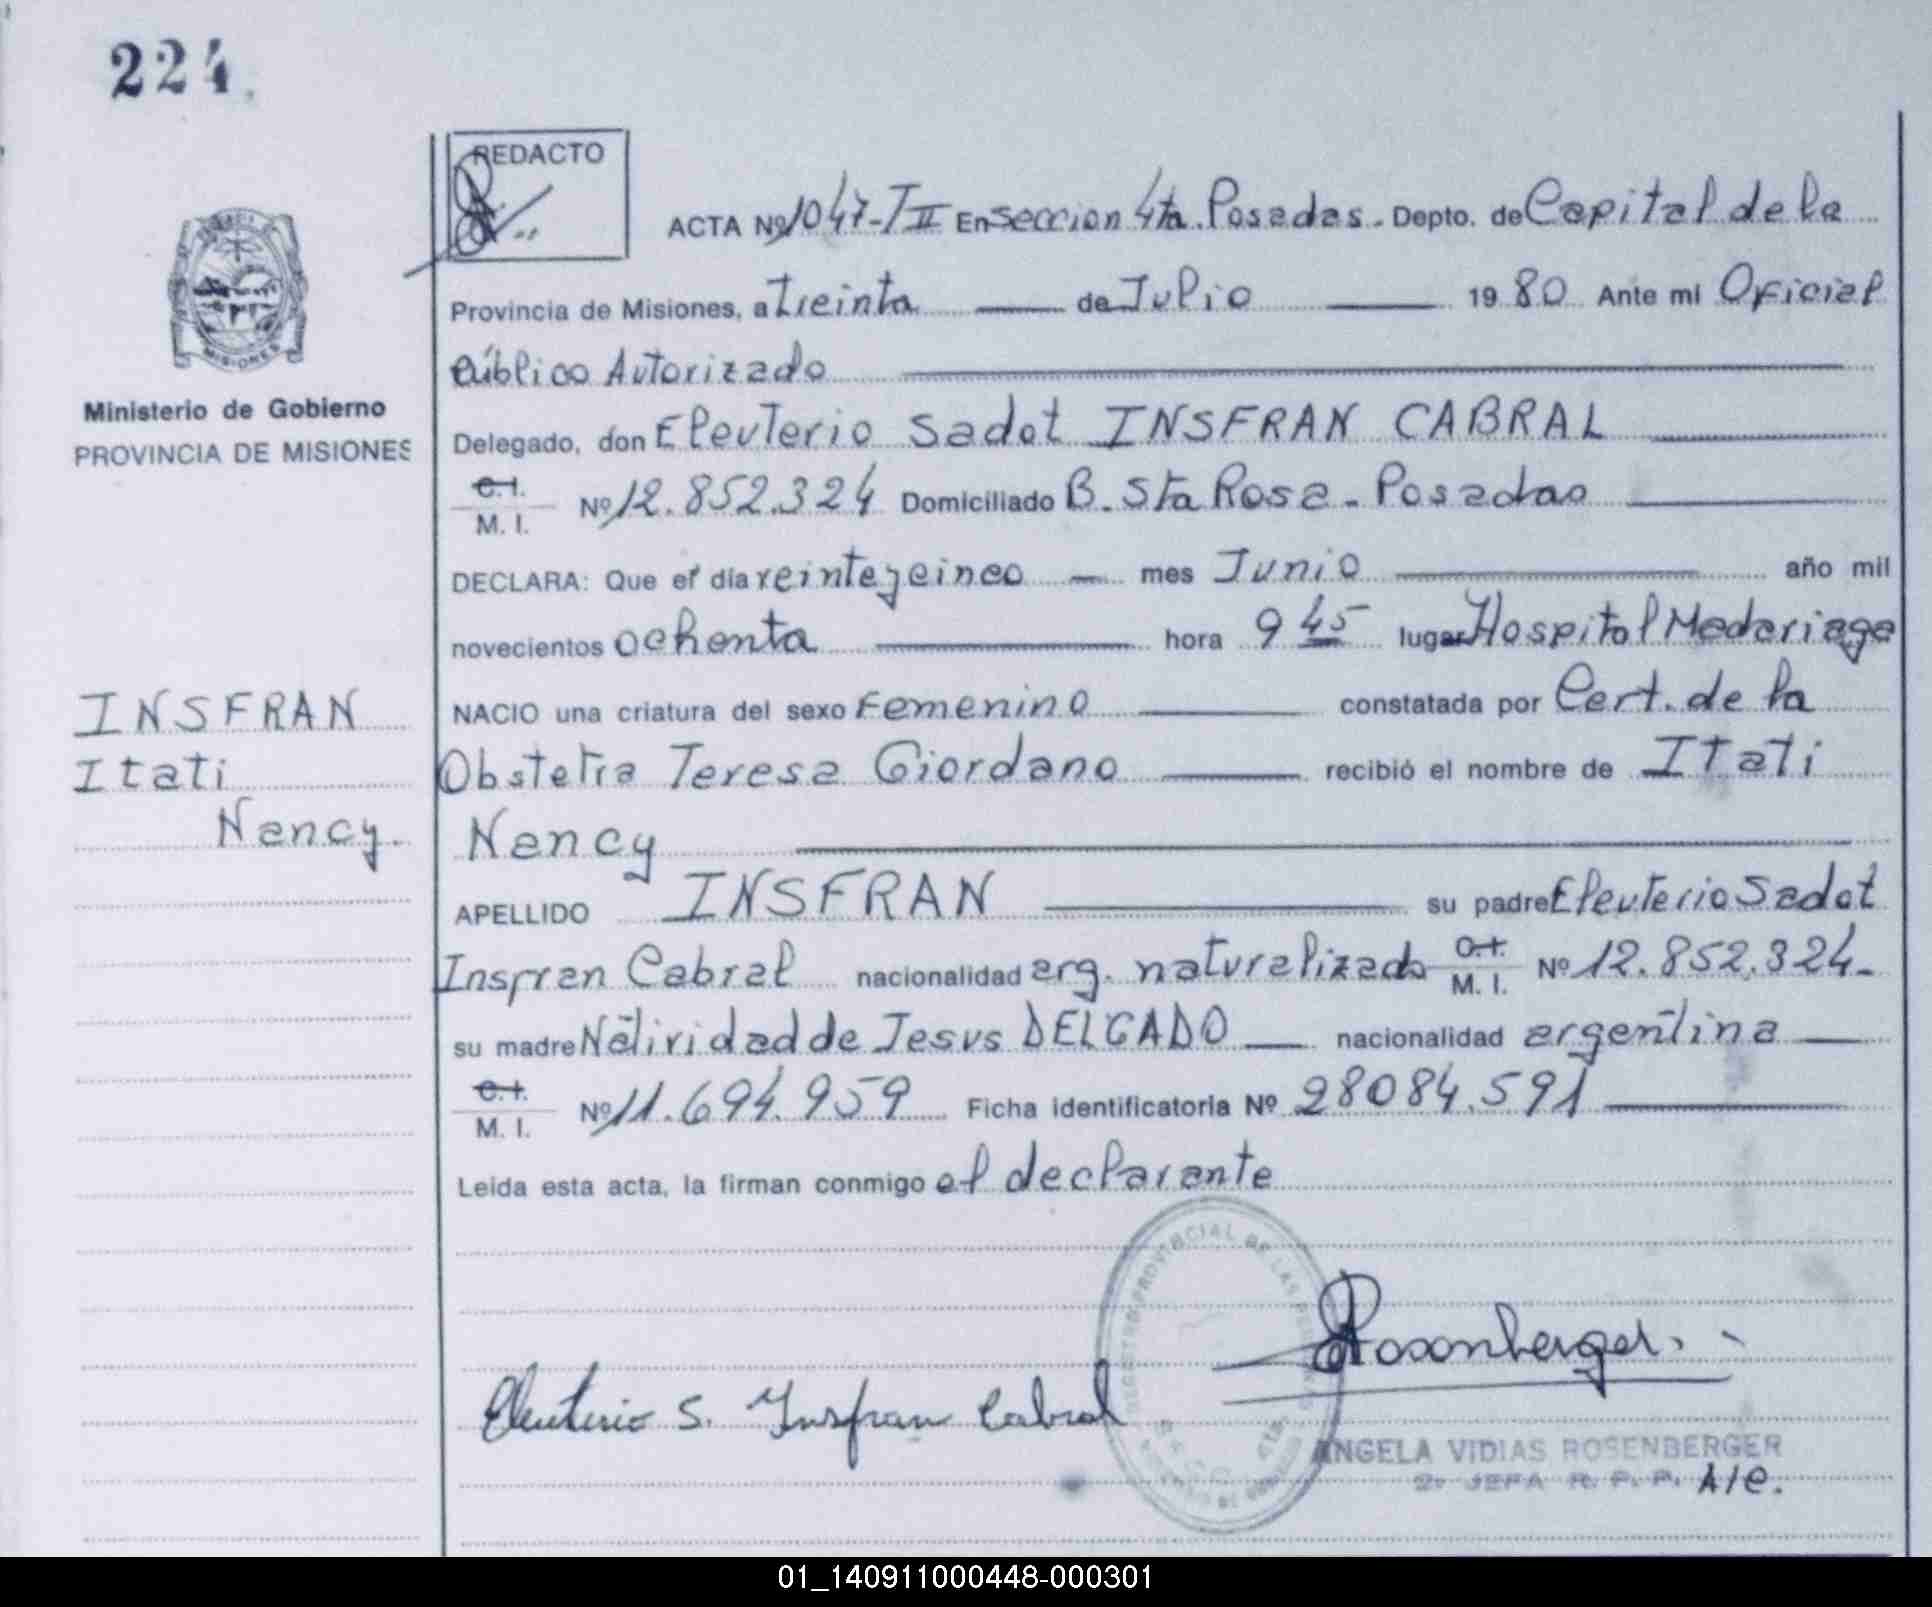 224.
REDACTO
ACTA Nº 1047-T II En seccion 4ta. Posadas. Depto. de Capital de la
Provincia de Misiones, a treinta de Julio 1980 Ante mi Oficial
Público Autorizado
MISIONES
Ministerio de Gobierno
PROVINCIA DE MISIONES
Delegado, don Eleuterio Sadot INSFRAN CABRAL
C. I.
M. I. Nº 12.852.324 Domiciliado B. Sta Rosa - Posadas
DECLARA: Que el día veinteycinco mes Junio año mil
novecientos ochenta hora 9 45 lugar Hospital Madariaga
NACIO una criatura del sexo Femenino constatada por Cert. de la
Obstetra Teresa Giordano recibió el nombre de Itati
Nancy
INSFRAN
Itati
Nancy.
APELLIDO INSFRAN su padre Eleuterio Sadot
Insfran Cabral nacionalidad arg. naturalizado C. I. M. I. Nº 12.852.324-
su madre Natividad de Jesus DELGADO nacionalidad argentina
C. I.
M. I. Nº 11.694.959 Ficha identificatoria Nº 28084.591
Leída esta acta, la firman conmigo el declarante
REGISTRO PROVINCIAL DE LAS PERSONAS
Eleuterio S. Insfran Cabral
Rosenberger
ANGELA VIDIAS ROSENBERGER
2ª JEFA R. P. P. A/C.
01_140911000448-000301